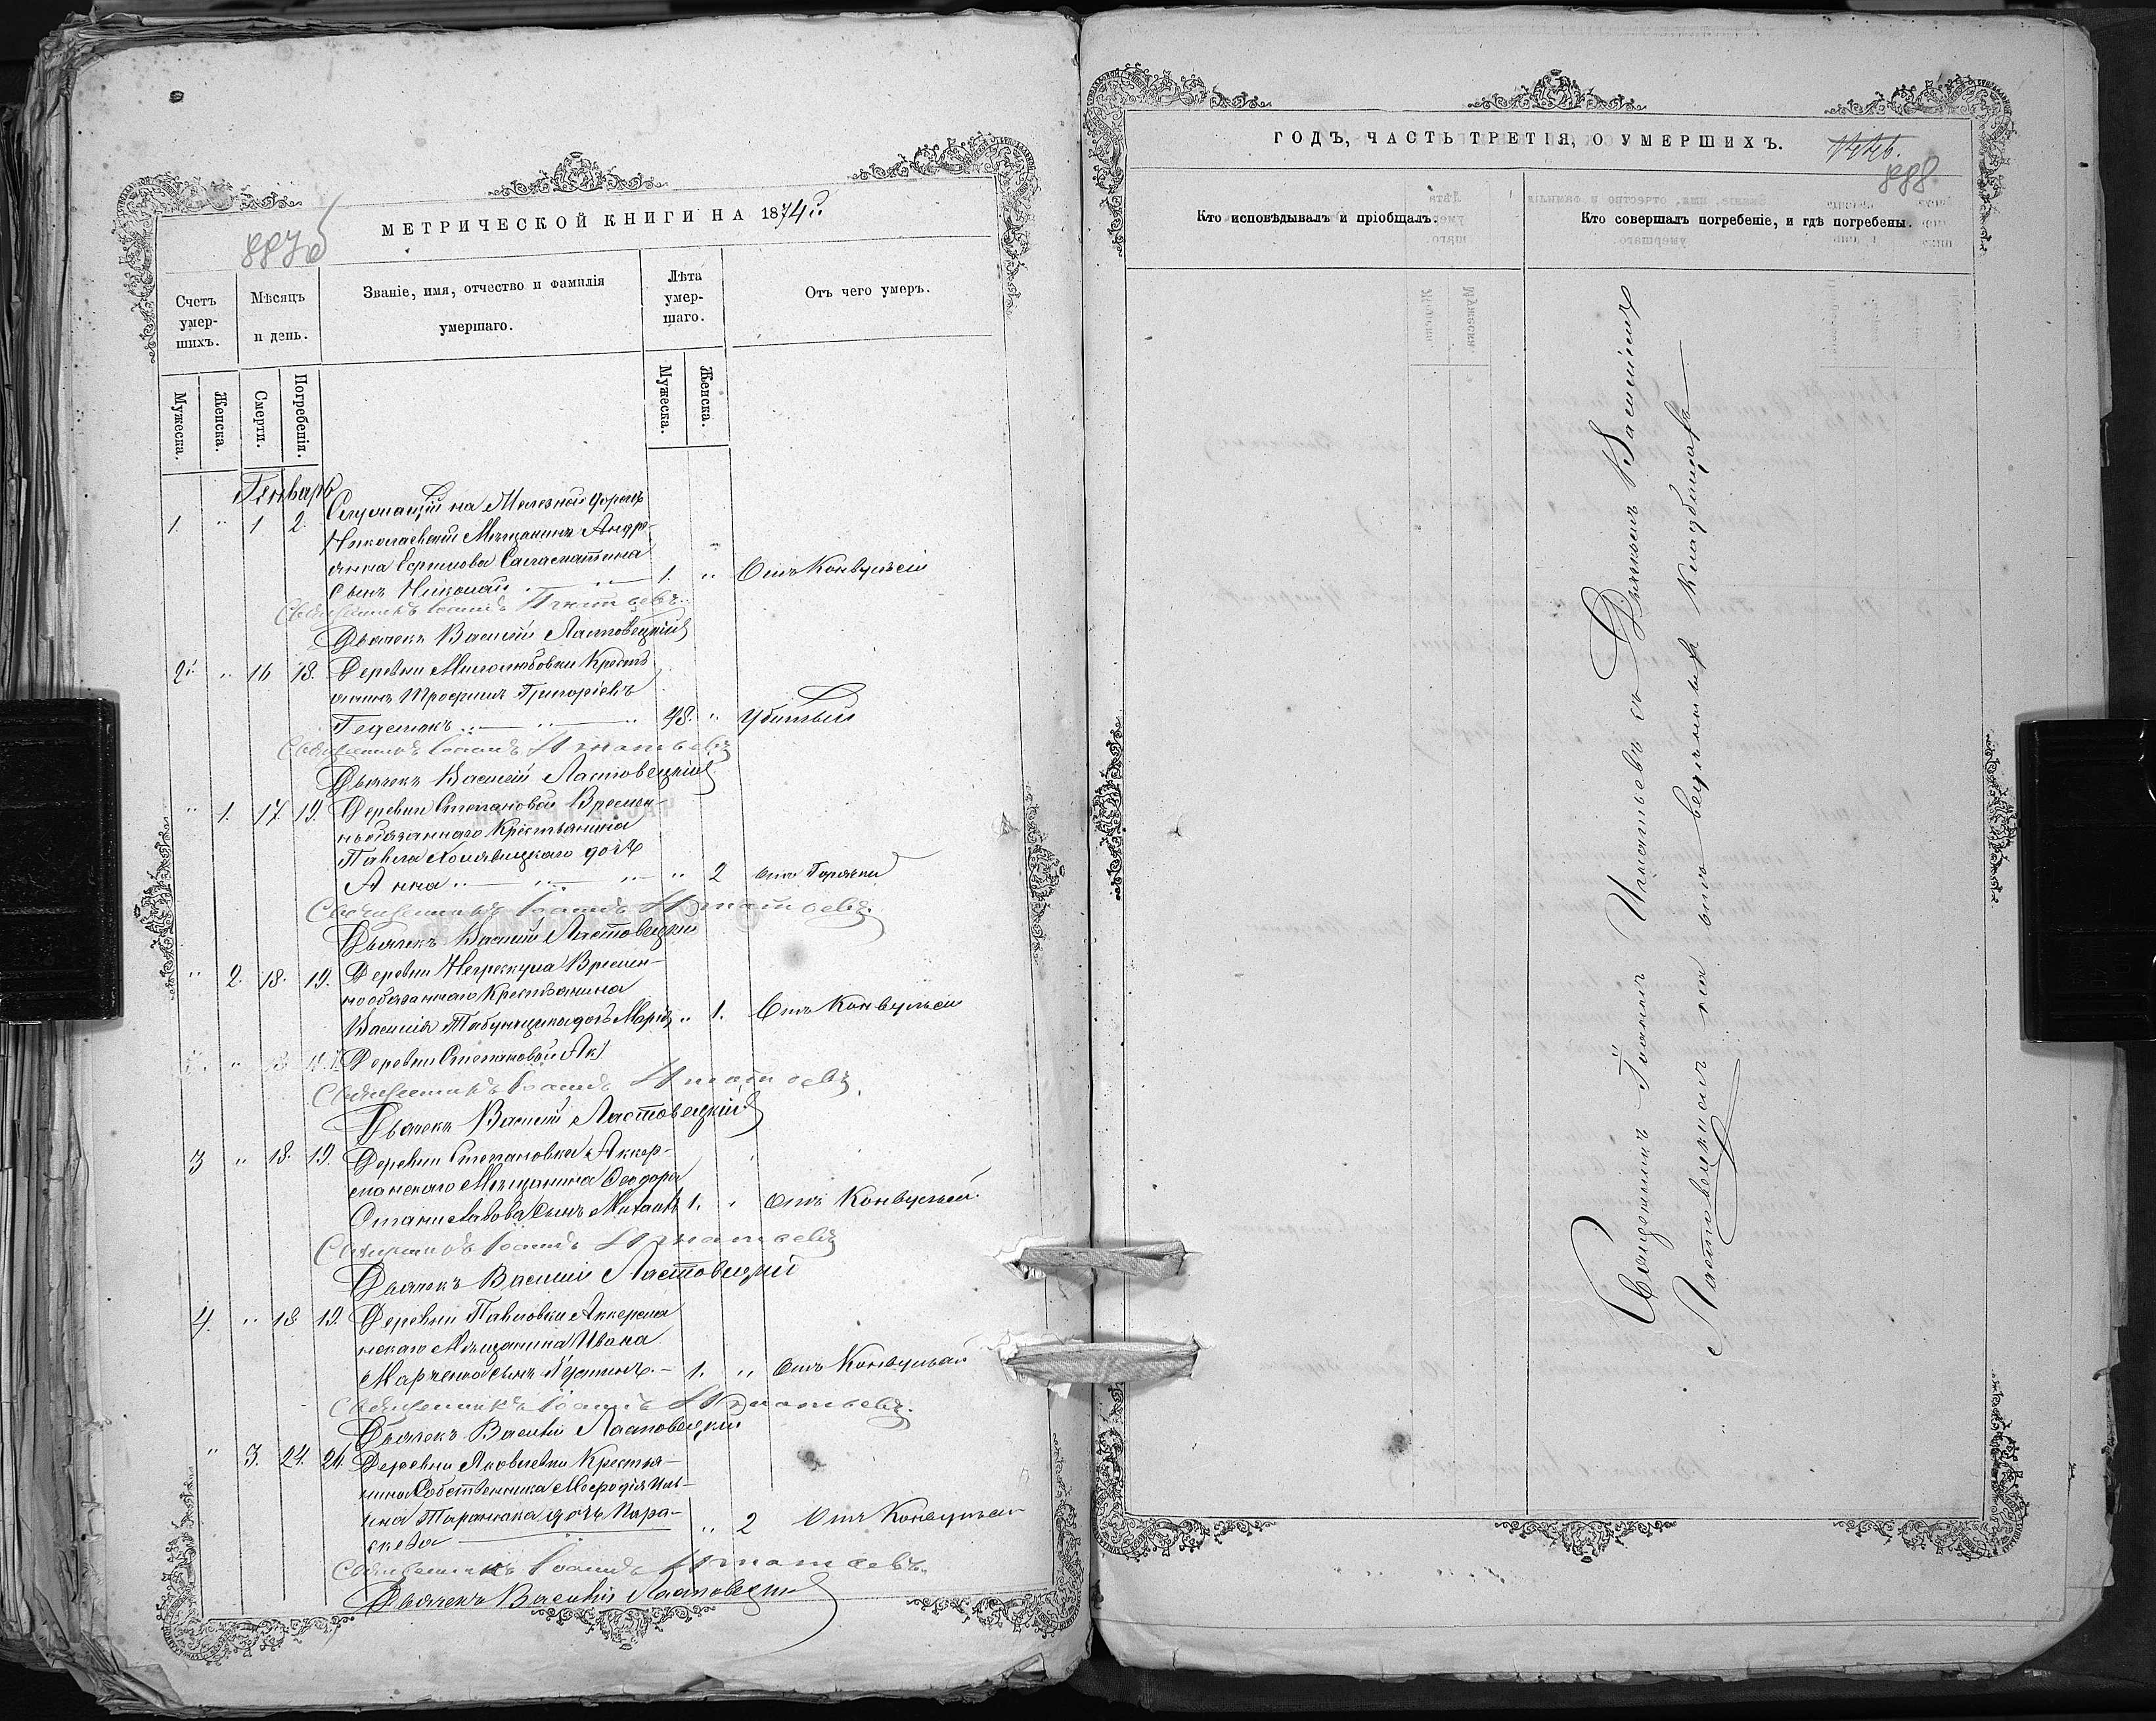 МЕТРИЧЕСКОЙ КНИГИ НА 1874 г.
887 об
Счетъ умер-шихъ.
Мѣсяцъ и день.
Званіе, имя, отчество и фамилія
умершаго.
Лѣта умер-шаго.
Отъ чего умеръ.
Мужеска.
Женска.
Смерти.
Погребенія.
Мужеска.
Женска.
Генварь
Служащій на Желѣзной дорогѣ
1. " 1 2. Николаевскій Мѣщанинъ Андре-
сынъ Николай 1. " Отъ Конвульсій
Священникъ Іоаннъ Игнатьевъ
Дьячекъ Василій Ластовецкій
2. " 16 18. Деревни Миколаевки Крестья
янинъ Трофимъ Григоріевъ
48. " Убитый
Священникъ Іоаннъ Игнатьевъ
Дьячекъ Василій Ластовецкій
" 1. 17. 19. Деревни Степановой Времен-
нообязаннаго Крестьянина
Павла дочь
Анна " 2 отъ Горячки
Священникъ Іоаннъ Игнатьевъ
Дьячекъ Василій Ластовецкій
" 2. 18. 19. Деревни Времен-
нообязаннаго Крестьянина
Василія Табунщика дочь Марія " 1. Отъ Конвульсій
Деревни Степановой Ак
Священникъ Іоаннъ Игнатьевъ
Дьячекъ Василій Ластовецкій
3 " 18. 19. Деревни Степановки Аккер-
манскаго Мѣщанина Ѳеодора
Станиславова сынъ Михаилъ 1. " Отъ Конвульсій
Священникъ Іоаннъ Игнатьевъ
Дьячекъ Василій Ластовецкій
4. " 18 19. Деревни Павловки Аккерма
нскаго Мѣщанина Ивана
Марченко сынъ 1. " Отъ Конвульсій
Священникъ Іоаннъ Игнатьевъ
Дьячекъ Василій Ластовецкій
" 3. 24. 26. Деревни Яковлевки Крестья-
нина Собственника Меѳодія
Таранюка дочь Пара-
скева " 2 Отъ Конвульсій
Священникъ Іоаннъ Игнатьевъ
Дьячекъ Василій Ластовецкій
ГОДЪ, ЧАСТЬ ТРЕТІЯ, О УМЕРШИХЪ.
888
Кто исповѣдывалъ и пріобщалъ.
Кто совершалъ погребеніе, и гдѣ погребены.
Священникъ Іоаннъ Игнатьевъ съ Дьячкомъ Василіемъ
Ластовецкимъ на отведенныхъ кладбищахъ